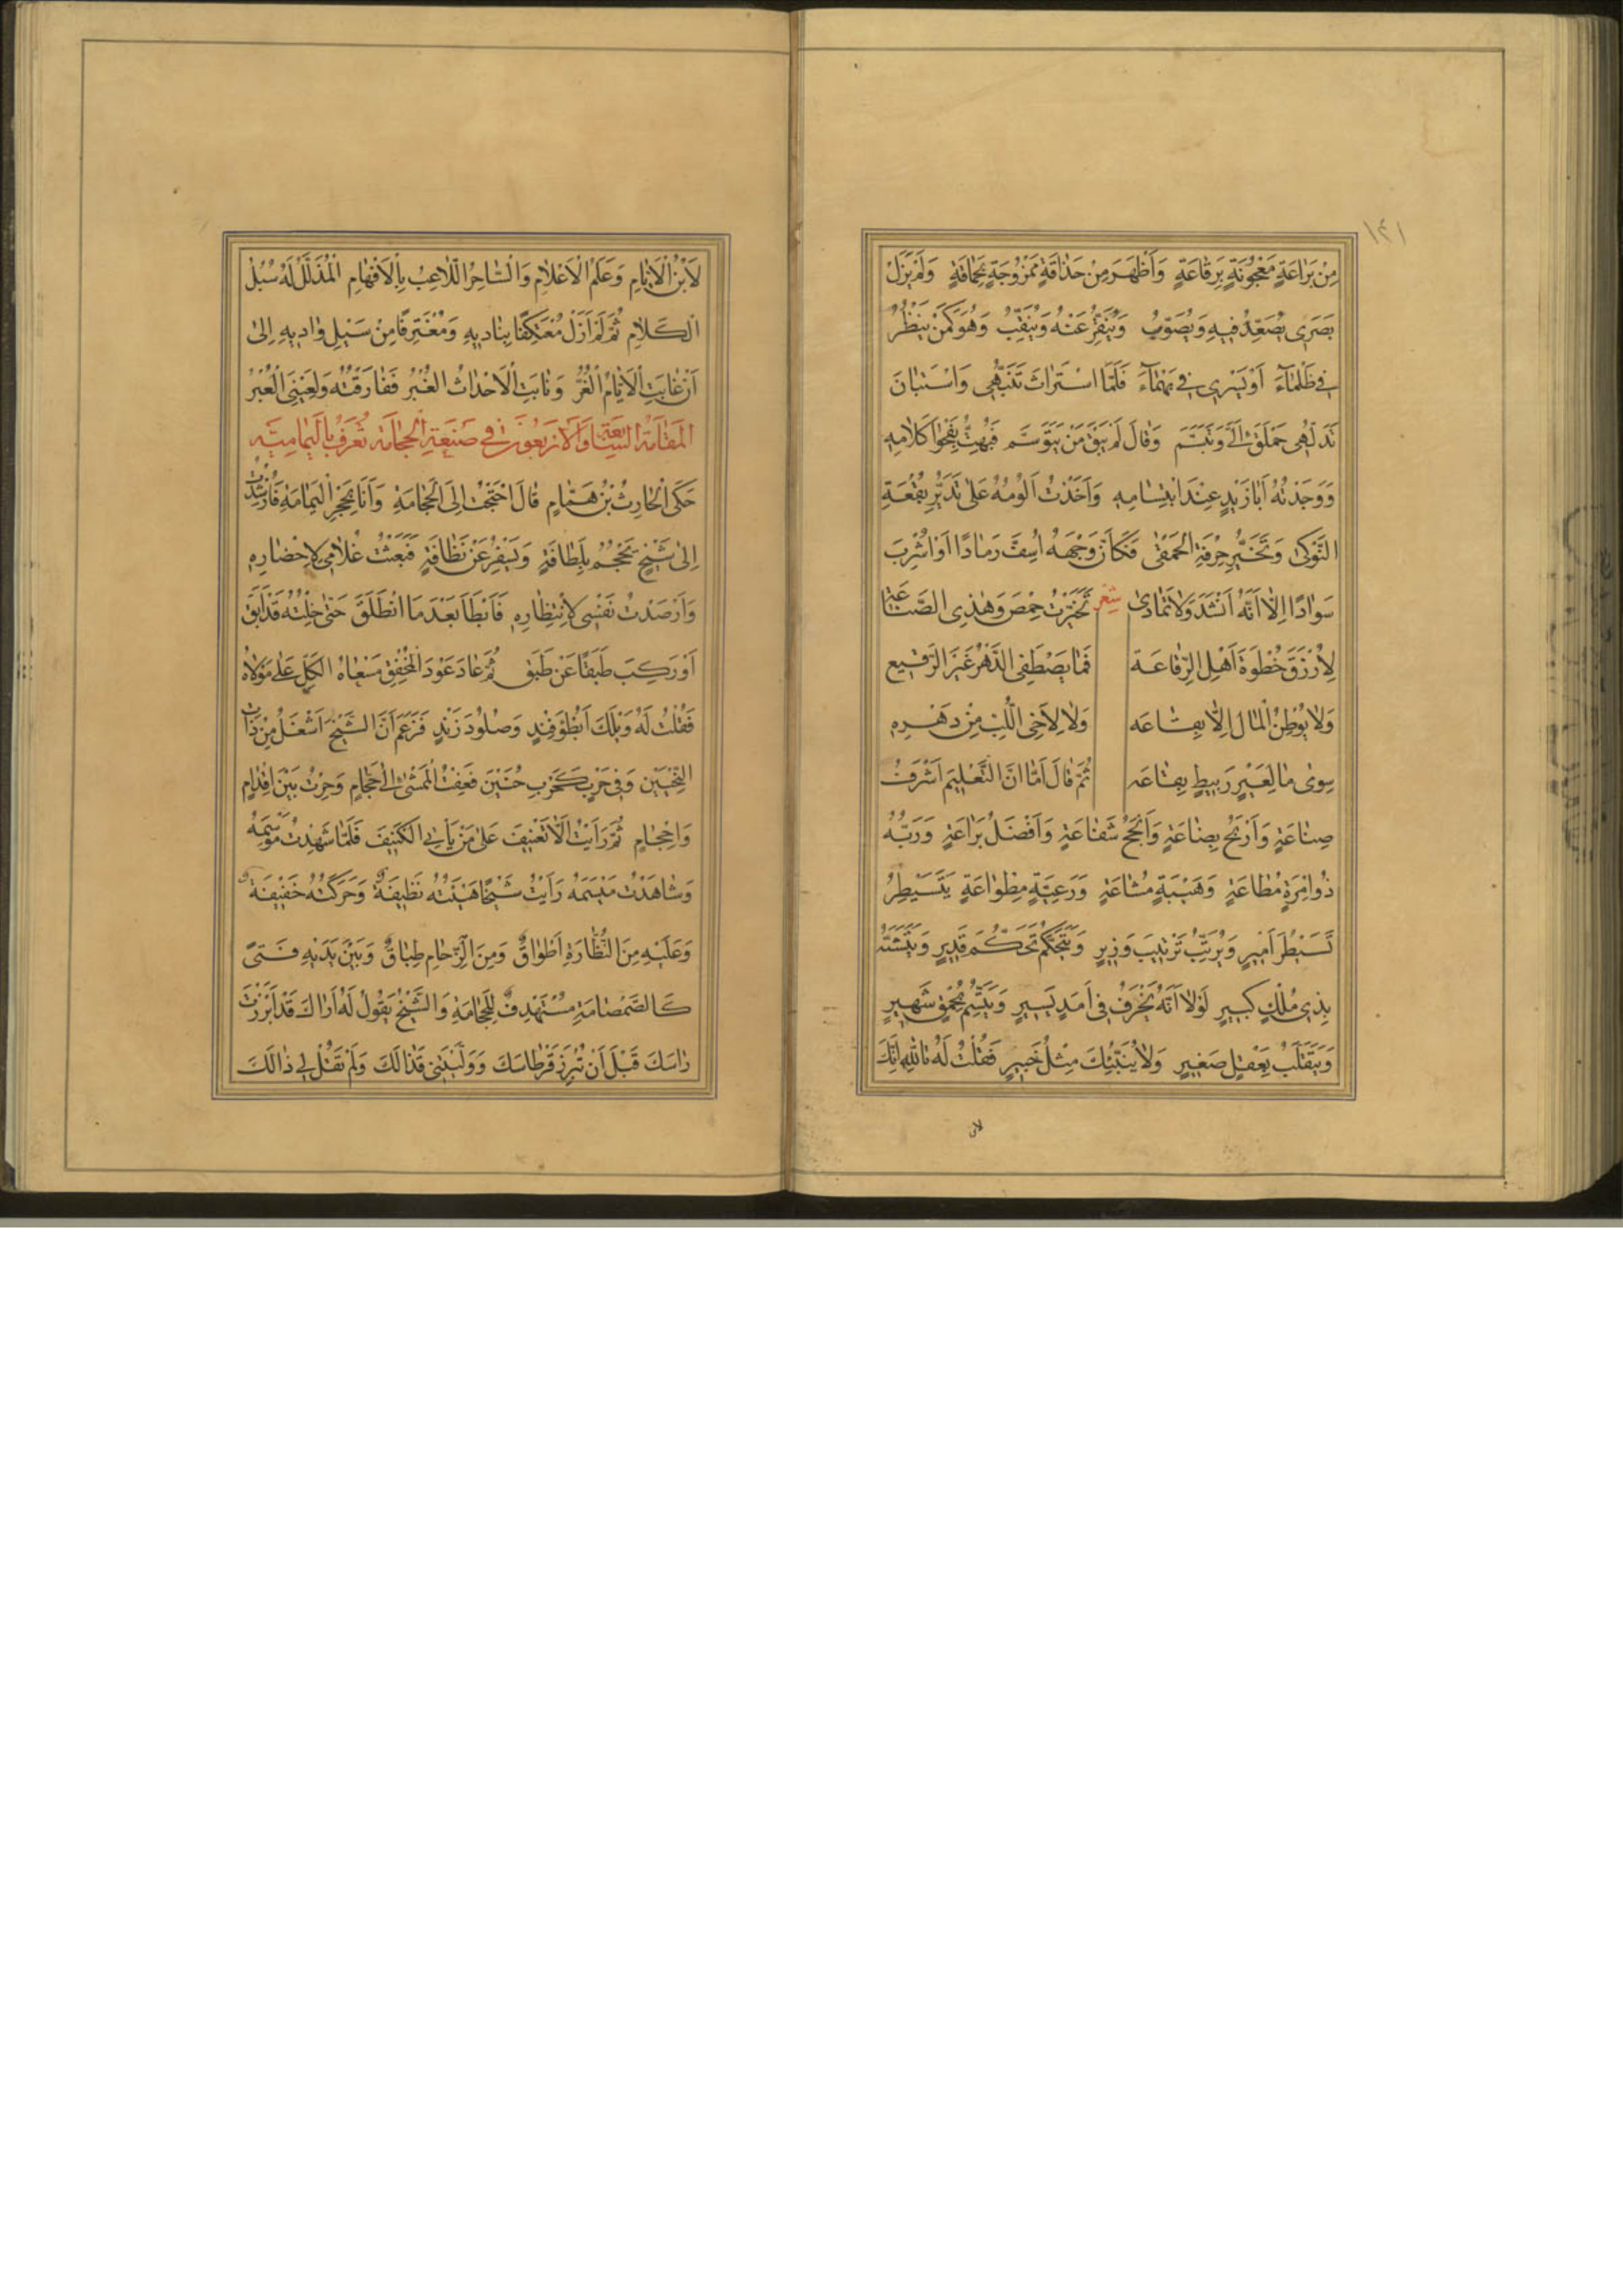 ١٤١
مِنْ بَرَاعَةٍ مَعْجُونَةٍ بِرَقَاعَةٍ وَأَظْهَرَ مِنْ حَذَاقَةٍ مَمْزُوجَةٍ بِحَمَاقَةٍ وَلَمْ يَزَلْ
بَصَرِى يُصَعِّدُ فِيهِ وَيُصَوِّبُ وَيُنَقِّرُ عَنْهُ وَيُنَقِّبُ وَهُوَ كَمَنْ يَنْظُرُ
فِى ظَلْمَآءَ اَوْ يَسْرِى فِى بَهْمَآءَ فَلَمَّا اسْتَرَاثَ تَنَبُّهِى وَاسْتَبَانَ
تَدَلُّهِى حَمْلَقَ اِلَىَّ وَتَبَسَّمَ وَقَالَ لَمْ يَبْقَ مَنْ يَتَوَسَّم فَبُهِتُّ بِفَحْوَا كَلَامِهِ
وَوَجَدْتُهُ اَبَا زَيْدٍ عِنْدَ ابْتِسَامِهِ وَاَخَذْتُ اَلُومُهُ عَلَى تَدَيُّرِ بُقْعَةِ
النَّوْكَى وَتَخَيُّرِ حِرْفَةِ الْحَمْقَى فَكَاَنَّ وَجْهَهُ اُسِفَّ رَمَادًا اَوْ اُشْرِبَ
سَوَادًا اِلَّا اَنَّهُ اَنْشَدَ وَلَا تَمَادَى شعر تَخَيَّرْتُ حِمْصَ وَهٰذِى الصِّنَاعَة
لِاُرْزَقَ حُظْوَةَ اَهْلِ الرِّقَاعَة فَمَا يَصْطَفِى الدَّهْرُ غَيْرَ الرَّقِيعِ
وَلَا يُوْطِنُ الْمَالَ اِلَّا بِقَاعَه وَلَا لِاَخِى اللُّبِّ مِنْ دَهْرِهِ
سِوَى مَا لِعَيْرٍ رَبِيطٍ بِقَاعَه ثُمَّ قَالَ اَمَا اِنَّ التَّعْلِيمَ اَشْرَفُ
صِنَاعَةٍ وَاَرْبَحُ بِضَاعَةٍ وَاَنْجَحُ شَفَاعَةٍ وَاَفْضَلُ بَرَاعَةٍ وَرَبُّهُ
ذُو اِمْرَةٍ مُطَاعَةٍ وَهَيْبَةٍ مُشَاعَةٍ وَرَعِيَّةٍ مِطْوَاعَةٍ يَتَسَيْطَرُ
تَسَيْطُرَ اَمِيرٍ وَيُرَتِّبُ تَرْتِيبَ وَزِيرٍ وَيَتَحَكَّمُ تَحَكُّمَ قَدِيرٍ وَيَتَشَبَّهُ
بِذِى مُلْكٍ كَبِيرٍ لَوْلَا اَنَّهُ يَخْرَفُ فِى اَمَدٍ يَسِيرٍ وَيَتَّسِمُ بِحُمْقٍ شَهِيرٍ
وَيَتَقَلَّبُ بِعَقْلٍ صَغِيرٍ وَلَا يُنَبِّئُكَ مِثْلُ خَبِيرٍ فَقُلْتُ لَهُ تَاللّٰهِ اِنَّكَ
لَابْنُ الْاَيَّامِ وَعَلَمُ الْاَعْلَامِ وَالسَّاحِرُ اللَّاعِبُ بِالْاَفْهَامِ الْمُذَلَّلُ لَهُ سُبُلُ
الْكَلَامِ ثُمَّ لَمْ اَزَلْ مُعْتَكِفًا بِنَادِيهِ وَمُغْتَرِفًا مِنْ سَيْلِ وَادِيهِ اِلَى
اَنْ غَابَتِ الْاَيَّامُ الْغُرُّ وَنَابَتِ الْاَحْدَاثُ الْغُبْرُ فَفَارَقْتُهُ وَلِعَيْنِى الْعُبْرُ
المَقَامَة السَّابِعَة وَالْاَرْبَعُونَ فِى صَنْعَةِ الْحِجَامَة تُعْرَفُ بِالْيَمَامِيَّه
حَكَى الْحَارِثُ بْنُ هَمَّامٍ قَالَ احْتَجْتُ اِلَى الْحِجَامَةِ وَاَنَا بِحَجْرِ الْيَمَامَةِ فَاُرْشِدْتُ
اِلَى شَيْخٍ يَحْجُمُ بِلَطَافَةٍ وَيُسْفِرُ عَنْ نَظَافَةٍ فَبَعَثْتُ غُلَامِى لِاِحْضَارِهِ
وَاَرْصَدْتُ نَفْسِى لِانْتِظَارِهِ فَاَبْطَاَ بَعْدَمَا انْطَلَقَ حَتّٰى خِلْتُهُ قَدْ اَبَقَ
اَوْ رَكِبَ طَبَقًا عَنْ طَبَقٍ ثُمَّ عَادَ عَوْدَ الْمُخْفِقِ مَسْعَاهُ الْكَلِّ عَلَى مَوْلَاهُ
فَقُلْتُ لَهُ وَيْلَكَ اَبُطْؤَ فِنْدٍ وَصُلُودَ زَنْدٍ فَزَعَمَ اَنَّ الشَّيْخَ اَشْغَلُ مِنْ ذَاتِ
النِّحْيَيْنِ وَفِى حَرْبٍ كَحَرْبِ حُنَيْنَ فَعِفْتُ الْمَمْشٰى اِلَى حَجَّامٍ وَحِرْتُ بَيْنَ اِقْدَامٍ
وَاِحْجَامٍ ثُمَّ رَاَيْتُ اَلَّا تَعْنِيفَ عَلَى مَنْ يَاْتِى الْكَنِيفَ فَلَمَّا شَهِدْتُ مَوْسِمَهُ
وَشَاهَدْتُ مَيْسَمَهُ رَاَيْتُ شَيْخًا هَيْئَتُهُ نَظِيفَةٌ وَحَرَكَتُهُ خَفِيفَةٌ
وَعَلَيْهِ مِنَ النَّظَّارَةِ اَطْوَاقٌ وَمِنَ الزِّحَامِ طِبَاقٌ وَبَيْنَ يَدَيْهِ فَتًى
كَالصَّمْصَامَةِ مُسْتَهْدِفٌ لِلْحِجَامَةِ وَالشَّيْخُ يَقُولُ لَهُ اَرَاكَ قَدْ اَبْرَزْتَ
رَاسَكَ قَبْلَ اَنْ تُبْرِزَ قِرْطَاسَكَ وَوَلَّيْتَنِى قَذَالَكَ وَلَمْ تَقُلْ لِى ذَا لَكَ